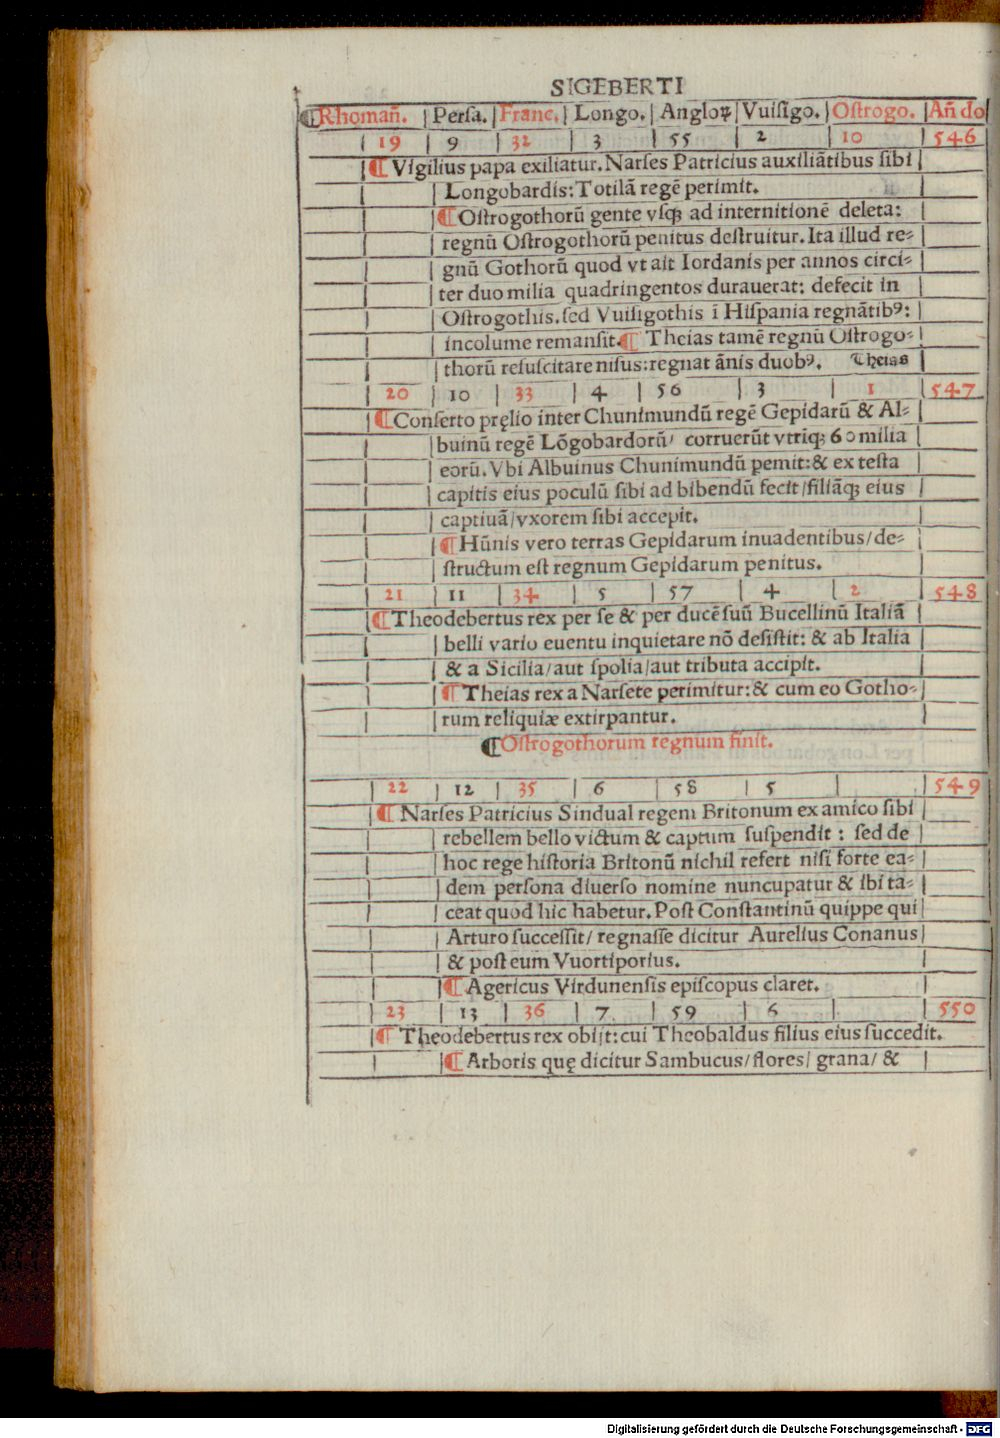 SIGEBERTI
¶Rhomañ. Perſa. Franc. Longo. Angloꝝ Vuiſigo. Oſtrogo. Añ do
19 9 32 3 55 2 10 546
¶ Vigilius papa exiliatur. Narſes Patricius auxiliãtibus ſibi
Longobardis: Totilã regẽ perimit.
¶Oſtrogothorũ gente vſqꝫ ad internitionẽ deleta:
regnũ Oſtrogothorũ penitus deſtruitur. Ita illud re⸗
gnũ Gothorũ quod vt ait Iordanis per annos circi⸗
ter duo milia quadringentos durauerat: defecit in
Oſtrogothis. ſed Vuiſigothis ĩ Hiſpania regnãtibꝰ:
incolume remanſit. ¶ Theias tamẽ regnũ Oſtrogo⸗
thorũ reſuſcitare niſus: regnat ãnis duobꝰ. Theias
20 10 33 4 56 3 1 547
¶Conſerto pręlio inter Chunimundũ regẽ Gepidarũ & Al⸗
buinũ regẽ Lõgobardorũ/ corruerũt vtriqꝫ 60 milia
eorũ. Vbi Albuinus Chunimundũ pemit: & ex teſta
capitis eius poculũ ſibi ad bibendũ fecit/filiãqꝫ eius
captiuã/vxorem ſibi accepit.
¶Hũnis vero terras Gepidarum inuadentibus/de⸗
ſtructum eſt regnum Gepidarum penitus.
21 11 34 5 57 4 2 548
¶Theodebertus rex per ſe & per ducẽ ſuũ Bucellinũ Italiã
belli vario euentu inquietare nõ deſiſtit: & ab Italia
& a Sicilia/aut ſpolia/aut tributa accipit.
¶Theias rex a Narſete perimitur: & cum eo Gotho⸗
rum reliquiæ extirpantur.
¶Oſtrogothorum regnum finit.
22 12 35 6 58 5 549
¶ Narſes Patricius Sindual regem Britonum ex amico ſibi
rebellem bello victum & captum ſuſpendit : ſed de
hoc rege hiſtoria Britonũ nichil refert niſi forte ea⸗
dem perſona diuerſo nomine nuncupatur & ibi ta⸗
ceat quod hic habetur. Poſt Conſtantinũ quippe qui
Arturo ſucceſſit/ regnaſſe dicitur Aurelius Conanus
& poſt eum Vuortiporius.
¶Agericus Virdunenſis epiſcopus claret.
23 13 36 7 59 6 550
¶ Theodebertus rex obijt: cui Theobaldus filius eius ſuccedit.
¶Arboris quę dicitur Sambucus/flores/ grana/ &
Digitalisierung gefördert durch die Deutsche Forschungsgemeinschaft - DFG